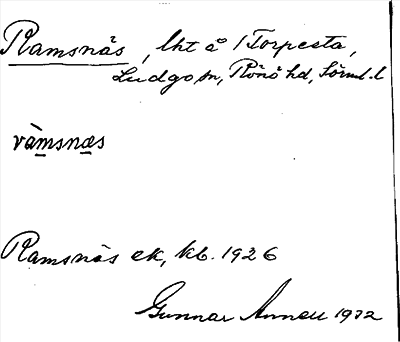 Ramsnäs, lht å 1 Torpesta,
Ludgo sn, Rönö hd, Sörml. l
ràmsnæs
Ramsnäs ek, kb. 1926
Gunnar 1932